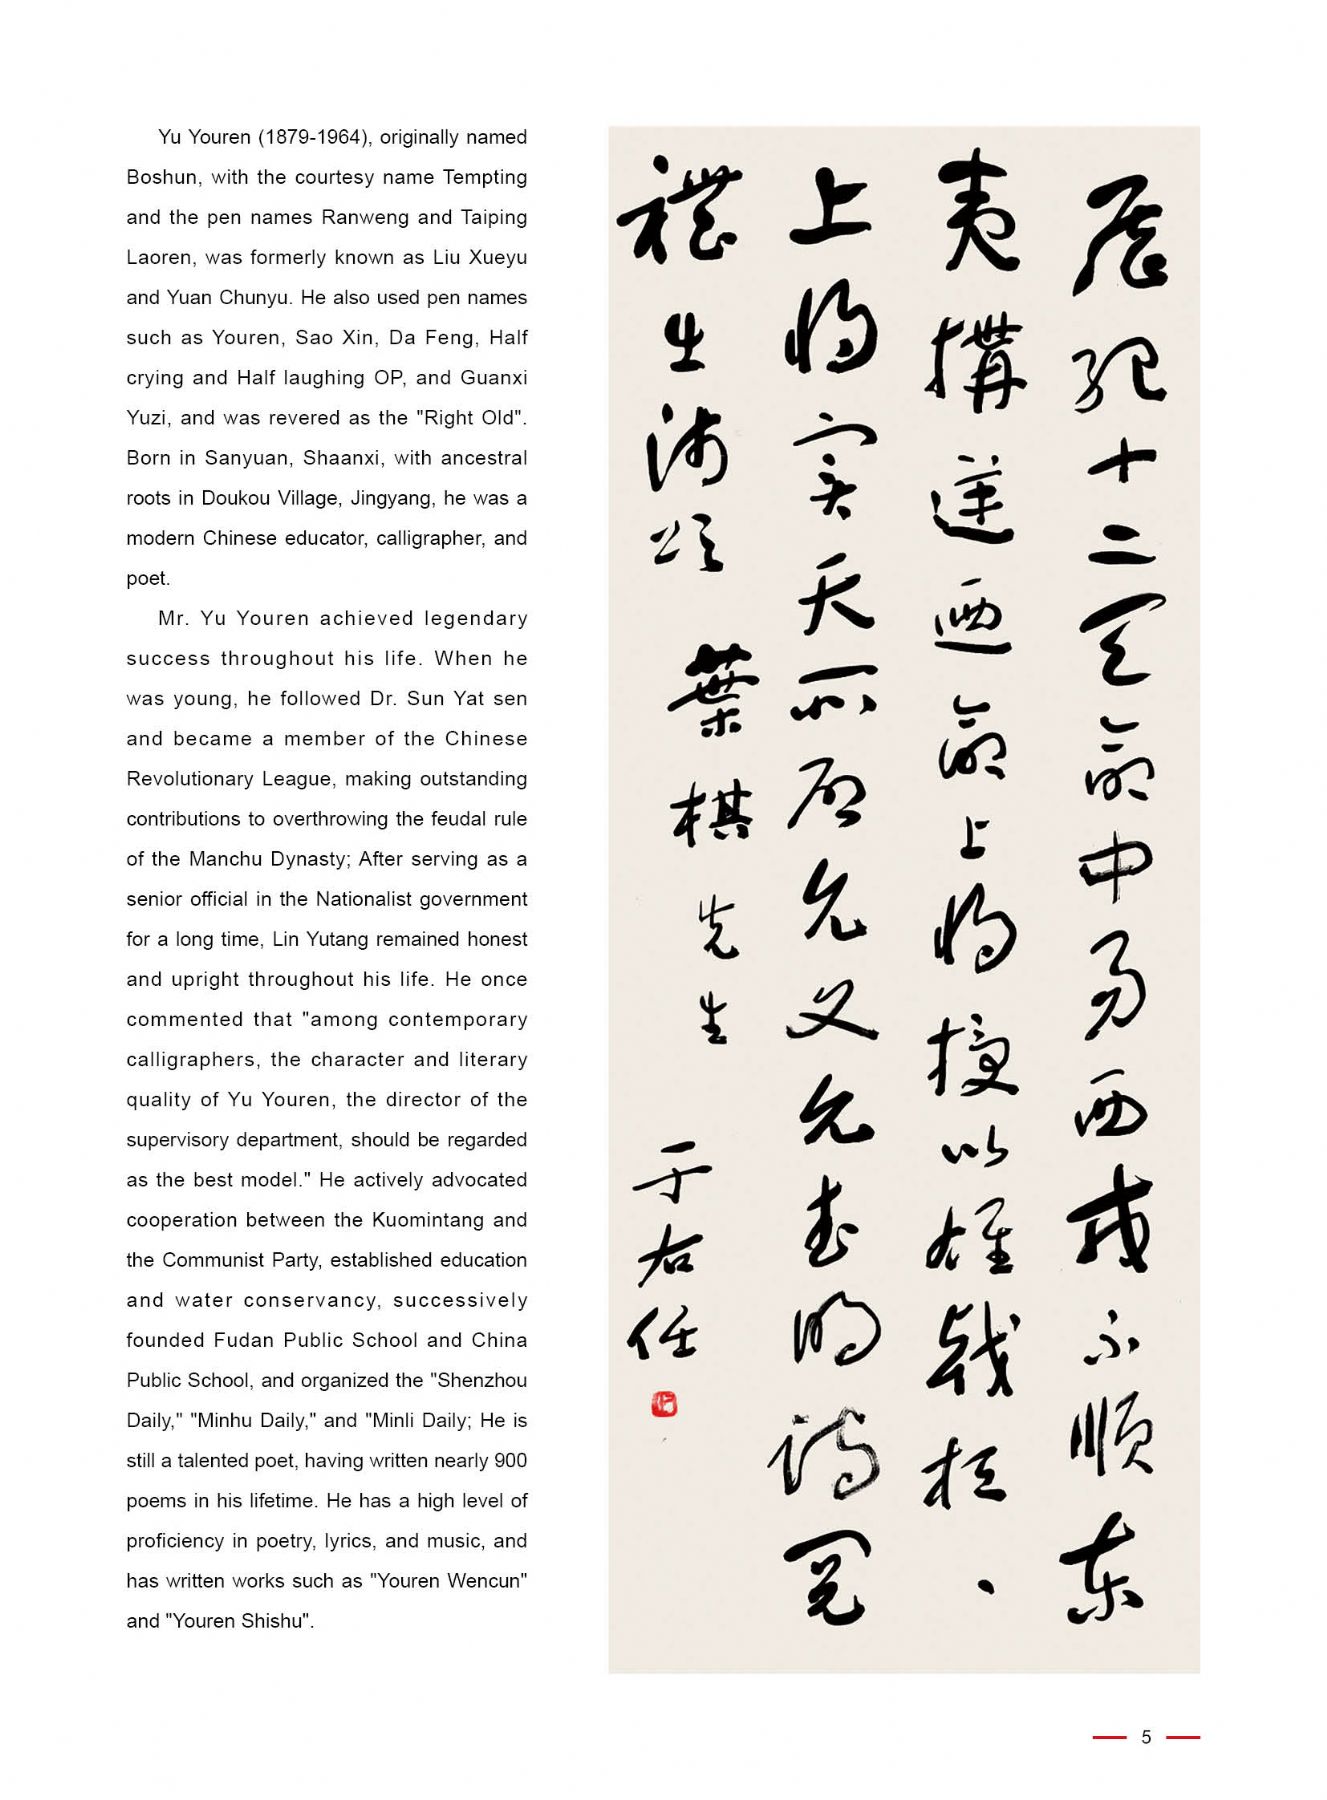 Yu Youren (1879-1964), originally named
Boshun, with the courtesy name Tempting
and the pen names Ranweng and Taiping
Laoren, was formerly known as Liu Xueyu
and Yuan Chunyu. He also used pen names
such as Youren, Sao Xin, Da Feng, Half
crying and Half laughing OP, and Guanxi
Yuzi, and was revered as the "Right Old".
Born in Sanyuan, Shaanxi, with ancestral
roots in Doukou Village, Jingyang, he was a
modern Chinese educator, calligrapher, and
poet.
Mr. Yu Youren achieved legendary
success throughout his life. When he
was young, he followed Dr. Sun Yat sen
and became a member of the Chinese
Revolutionary League, making outstanding
contributions to overthrowing the feudal rule
of the Manchu Dynasty; After serving as a
senior official in the Nationalist government
for a long time, Lin Yutang remained honest
and upright throughout his life. He once
commented that "among contemporary
calligraphers, the character and literary
quality of Yu Youren, the director of the
supervisory department, should be regarded
as the best model." He actively advocated
cooperation between the Kuomintang and
the Communist Party, established education
and water conservancy, successively
founded Fudan Public School and China
Public School, and organized the "Shenzhou
Daily," "Minhu Daily," and "Minli Daily; He is
still a talented poet, having written nearly 900
poems in his lifetime. He has a high level of
proficiency in poetry, lyrics, and music, and
has written works such as "Youren Wencun"
and "Youren Shishu".
歷紀十二天命中易西戎不順東
夷構逆迺命上將授以雄戟桓、
上將實天所啟允文允武明詩閱
禮出師頌 葉棋先生
于右任
5